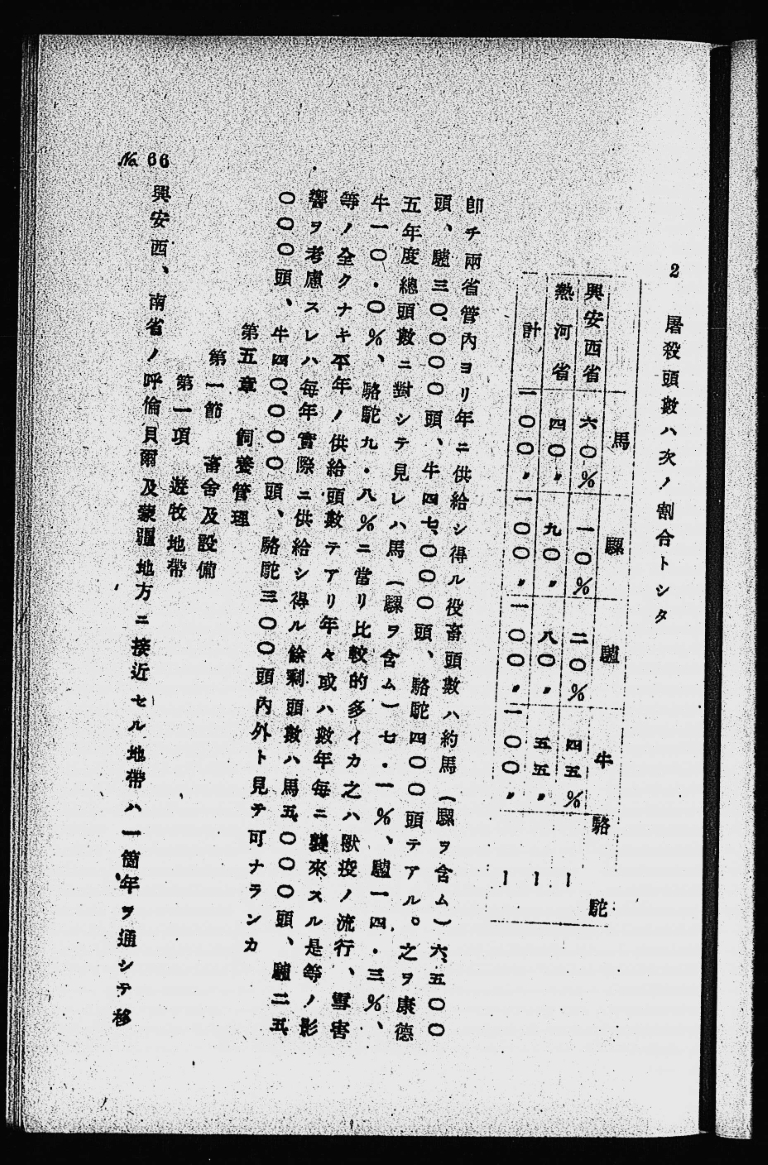 2 屠殺頭數ハ次ノ割合トシタ
馬 騾 驢 牛 駱駝
興安西省 六〇% 一〇% 二〇% 四五% ―
熱河省 四〇〃 九〇〃 八〇〃 五五〃 ―
計 一〇〇〃 一〇〇〃 一〇〇〃 一〇〇〃 ―
卽チ兩省管內ヨリ年ニ供給シ得ル役畜頭數ハ約馬(騾ヲ含ム)六、五〇〇
頭、驢三〇、〇〇〇頭、牛四七、〇〇〇頭、駱駝四〇〇頭テアル。之ヲ康德
五年度總頭數ニ對シテ見レハ馬(騾ヲ含ム)七・一%、驢一四・三%、
牛一〇・〇%、駱駝九・八%ニ當リ比較的多イカ之ハ獸疫ノ流行、雪害
等ノ全クナキ平年ノ供給頭數テアリ年々或ハ數年每ニ襲來スル是等ノ影
響ヲ考慮スレハ每年實際ニ供給シ得ル餘剩頭數ハ馬五、〇〇〇頭、驢二五、
〇〇〇頭、牛四〇、〇〇〇頭、駱駝三〇〇頭內外ト見テ可ナランカ
第五章 飼養管理
第一節 畜舍及設備
第一項 遊牧地帶
興安西、南省ノ呼倫貝爾及蒙疆地方ニ接近セル地帶ハ一箇年ヲ通シテ移
No. 66